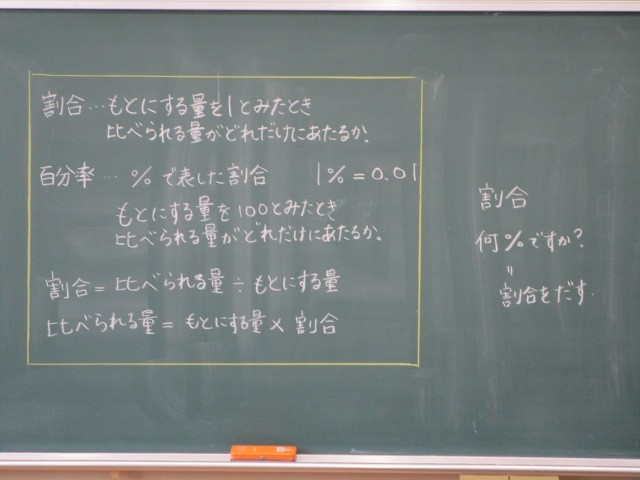 割合…もとにする量を1とみたとき
比べられる量がどれだけにあたるか。
百分率…%で表した割合 1%=0.01
もとにする量を100とみたとき
比べられる量がどれだけにあたるか。
割合=比べられる量÷もとにする量
比べられる量=もとにする量×割合
割合
何%ですか?
〃
割合をだす.